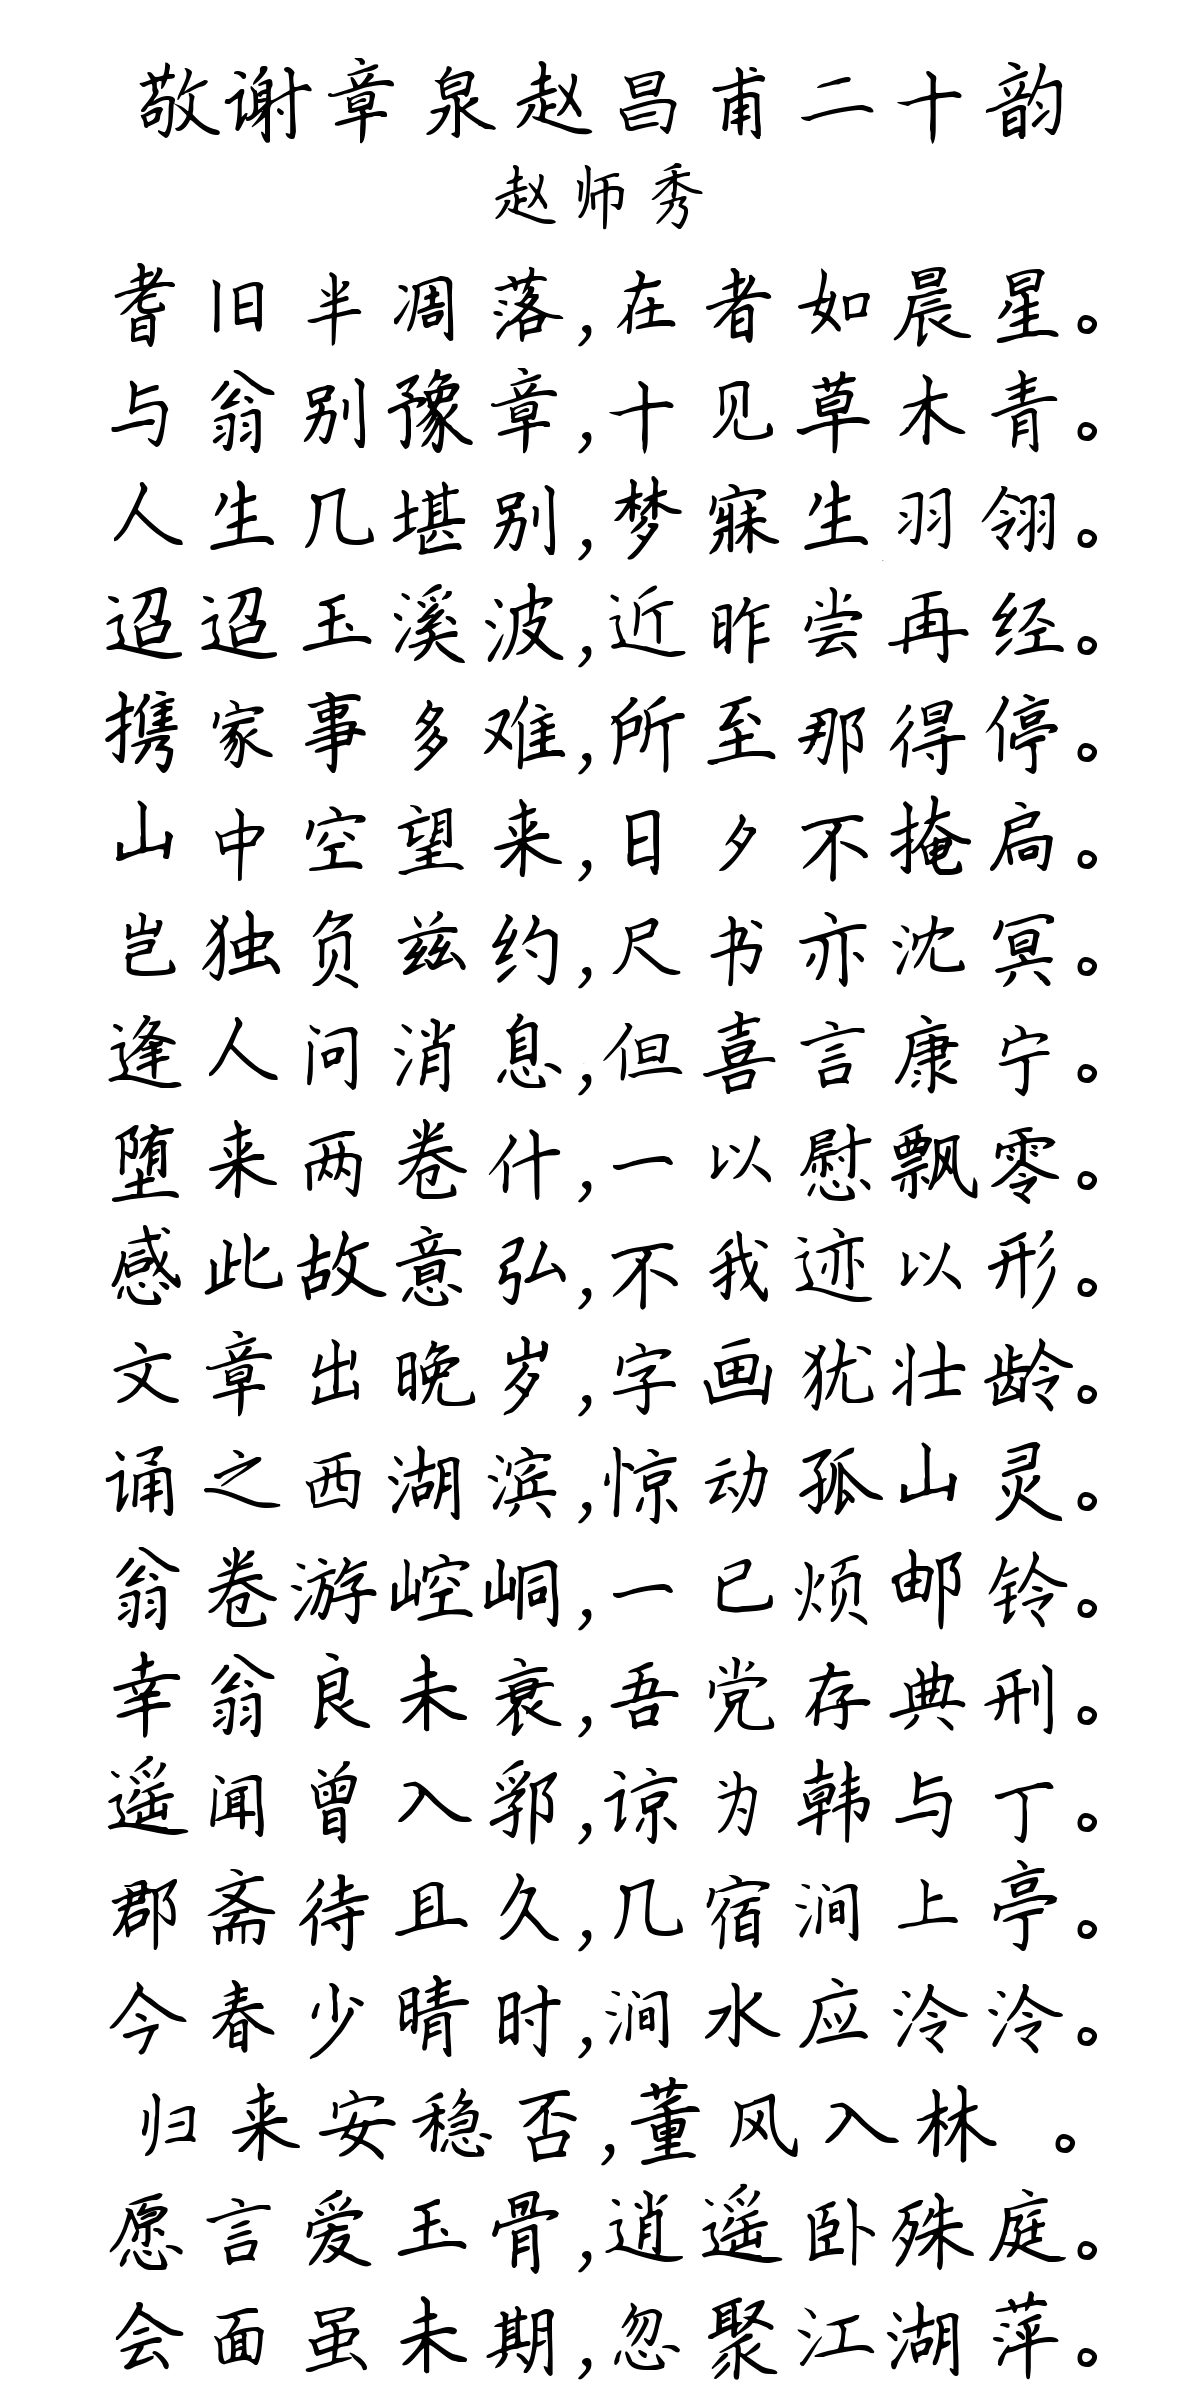 敬谢章泉赵昌甫二十韵
赵师秀
耆旧半凋落,在者如晨星。
与翁别豫章,十见草木青。
人生几堪别,梦寐生羽翎。
迢迢玉溪波,近昨尝再经。
携家事多难,所至那得停。
山中空望来,日夕不掩扃。
岂独负兹约,尺书亦沈冥。
逢人问消息,但喜言康宁。
堕来两卷什,一以慰飘零。
感此故意弘,不我迹以形。
文章出晚岁,字画犹壮龄。
诵之西湖滨,惊动孤山灵。
翁卷游崆峒,一已烦邮铃。
幸翁良未衰,吾党存典刑。
遥闻曾入郛,谅为韩与丁。
郡斋待且久,几宿涧上亭。
今春少晴时,涧水应泠泠。
归来安稳否,董风入林 。
愿言爱玉骨,逍遥卧殊庭。
会面虽未期,忽聚江湖萍。